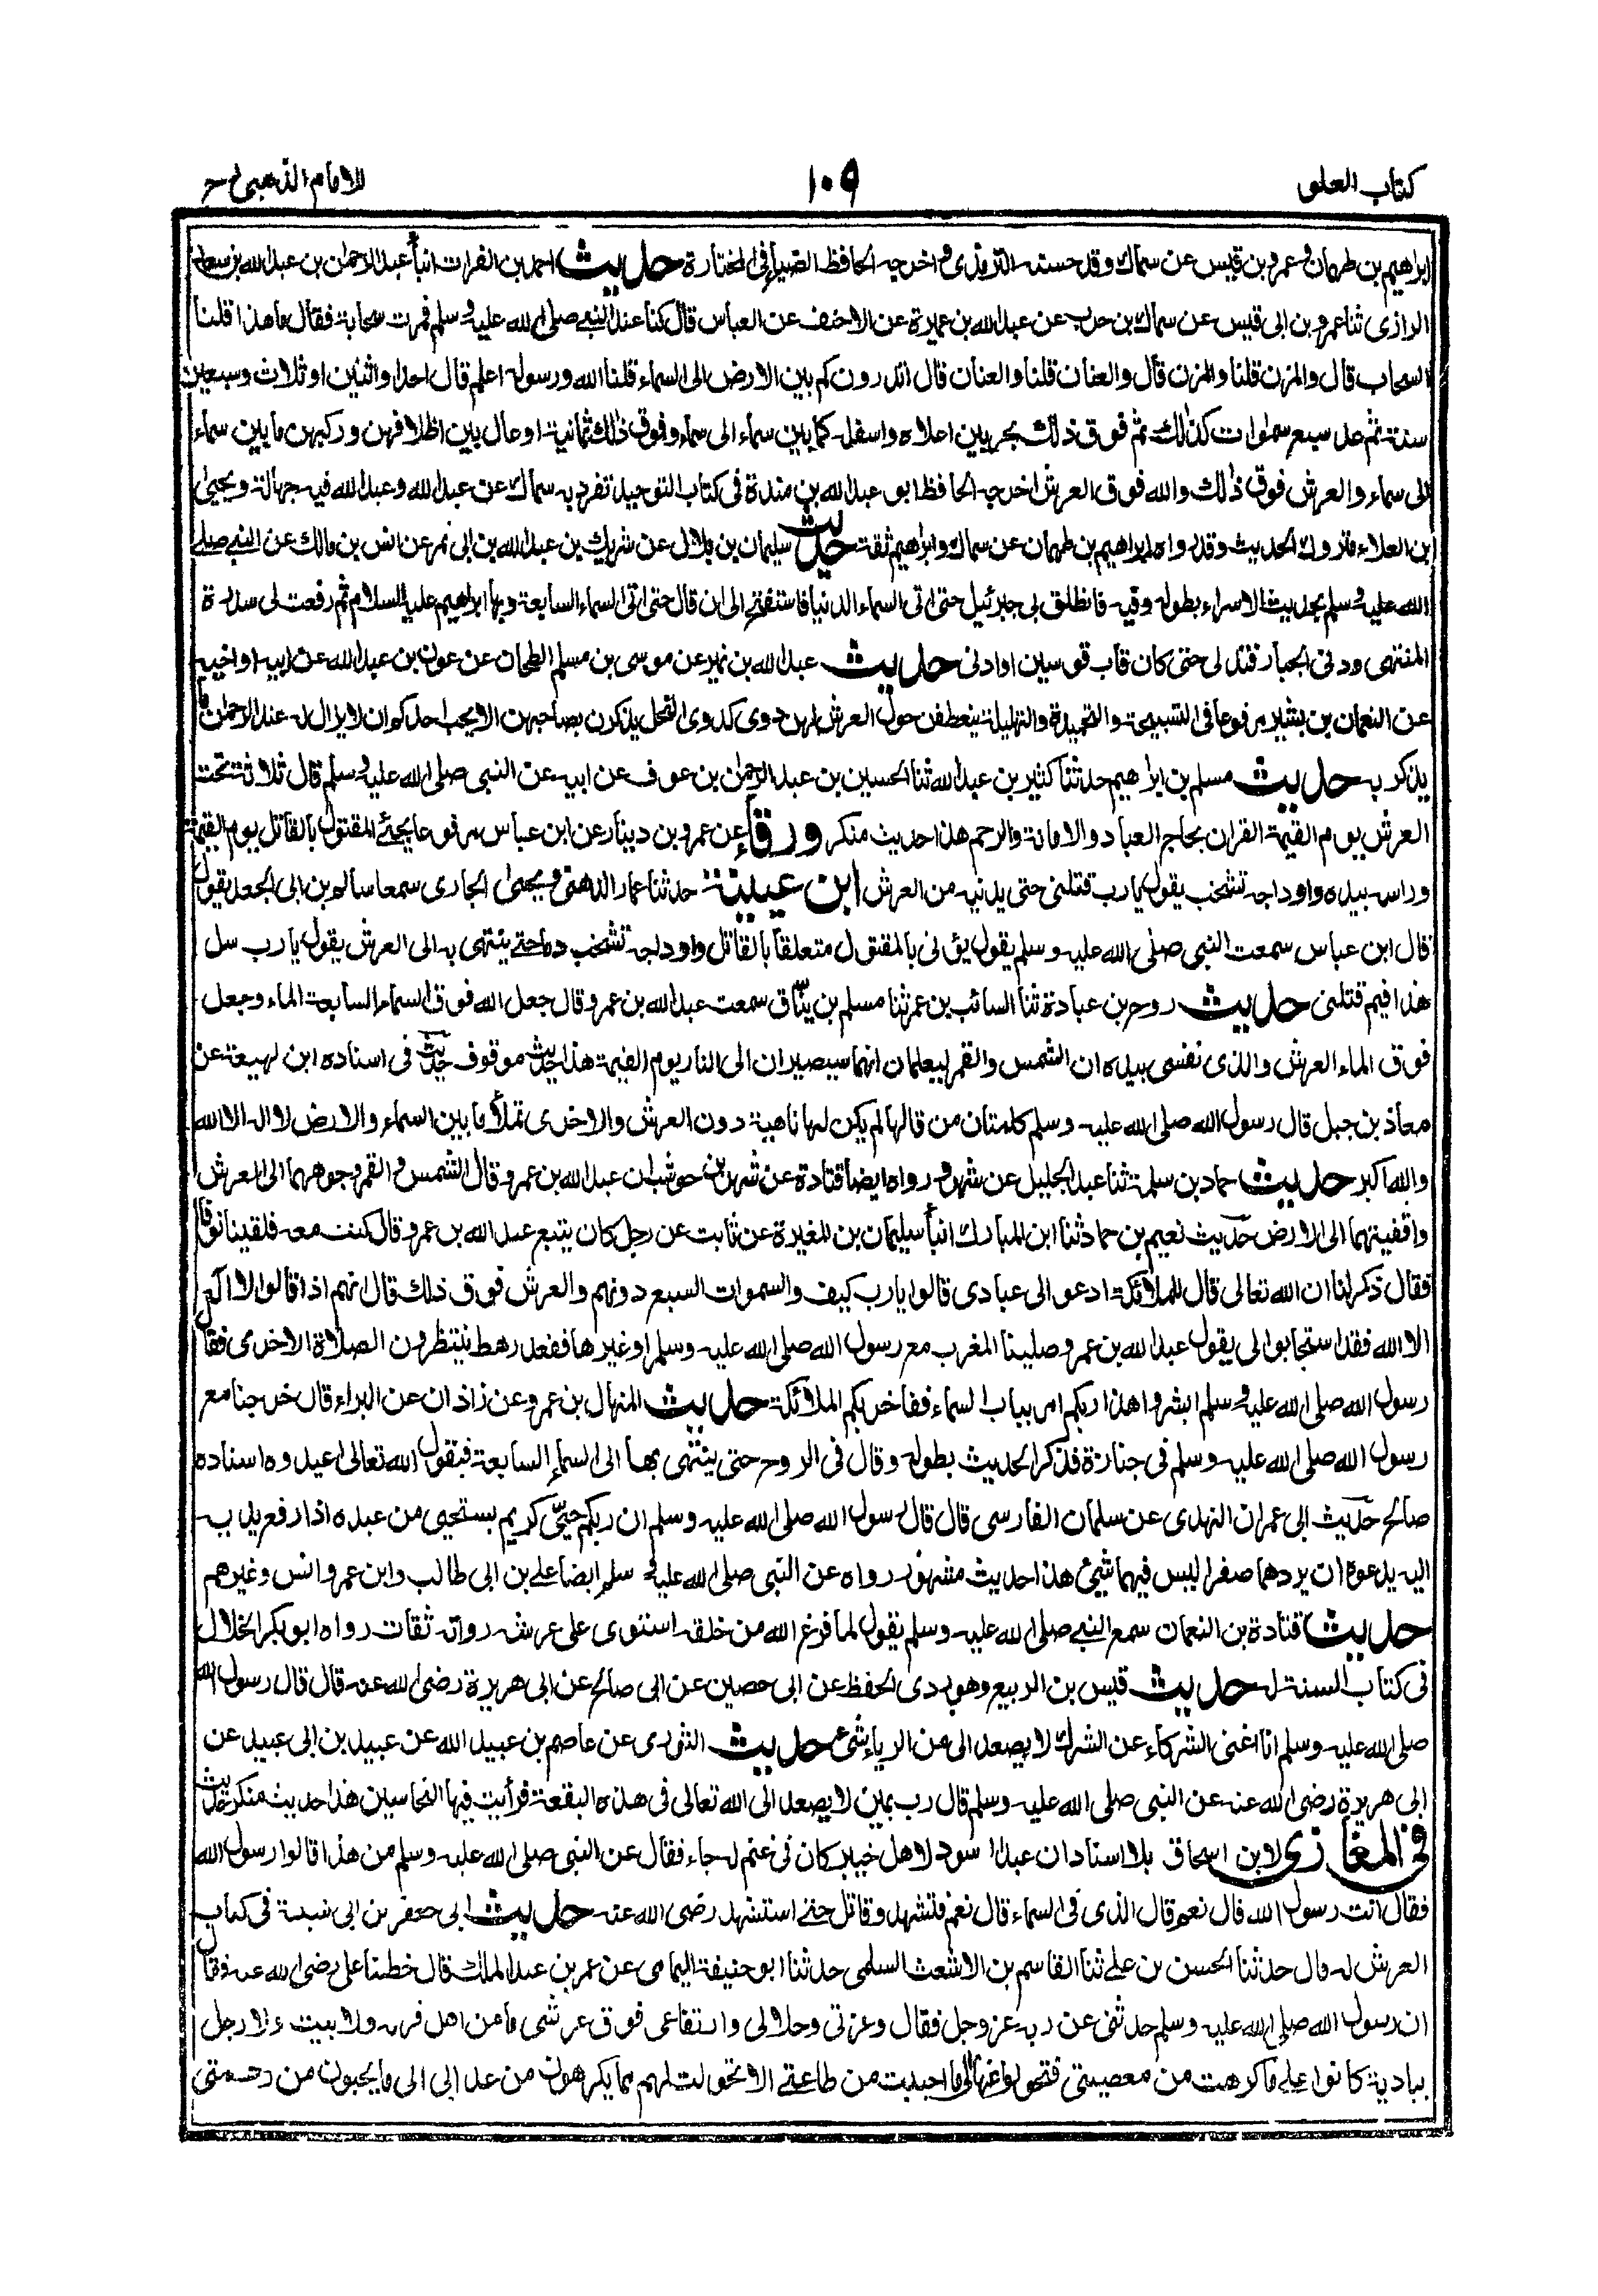 كتاب العلو
١٠٩
للامام الذهبى رح
ابراهيم بن طهمان وعمرو بن قيس عن سماك وقد حسنه الترمذى واخرجه الحافظ الضياء فى المختارة حديث احمد بن الفرات انبأ عبد الرحمٰن بن عبد الله بن سعد
الرازى ثنا عمرو بن ابى قيس عن سماك بن حرب عن عبد الله بن عميرة عن الاحنف عن العباس قال كنا عند النبى صلى الله عليه وسلم فمرت سحابة فقال ما هذا قلنا
السحاب قال والمزن قلنا والمزن قال والعنان قلنا والعنان قال اتدرون كم بين الارض الى السماء قلنا الله ورسوله اعلم قال احدا واثنين او ثلاث وسبعين
سنة ثم عد سبع سمٰوات كذلك ثم فوق ذلك بحر بين اعلاه واسفله كما بين سماء الى سماء وفوق ذلك ثمانية اوعال بين اظلافهن وركبهن ما بين سماء
الى سماء والعرش فوق ذلك والله فوق العرش اخرجه الحافظ ابو عبد الله بن مندة فى كتاب التوحيد تفرد به سماك عن عبد الله وعبد الله فيه جهالة ويحيىٰ
ابن العلاء متروك الحديث وقد رواه ابراهيم بن طهمان عن سماك وابراهيم ثقة حديث سليمان بن بلال عن شريك بن عبد الله بن ابى نمر عن انس بن مالك عن النبى صلى
الله عليه وسلم بحديث الاسراء بطوله وفيه فانطلق بى جبرئيل حتى اتى السماء الدنيا فاستفتح الى ان قال حتى اتى السماء السابعة وبها ابراهيم عليه السلام ثم رفعت لى سدرة
المنتهى ودنى الجبار فتدلى حتى كان قاب قوسين او ادنى حديث عبد الله بن نمير عن موسى بن مسلم الطحان عن عون بن عبد الله عن ابيه او اخيه
عن النعمان بن بشير مرفوعا فى التسبيحة والتحميدة والتهليلة ينعطفن حول العرش لهن دوى كدوى النحل يذكرن بصاحبهن الا يحب احدكم ان لا يزال له عند الرحمٰن ما
يذكر به حديث مسلم بن ابراهيم حدثنا كثير بن عبد الله ثنا الحسين بن عبد الرحمٰن بن عوف عن ابيه عن النبى صلى الله عليه وسلم قال ثلاثة تحت
العرش يوم القيمة القران يحاج العباد والامانة والرحم هذا حديث منكر ورقاء عن عمرو بن دينار عن ابن عباس مرفوعا يجئ المقتول بالقاتل يوم القيمة
وراسه بيده واوداجه تشخب يقول يا رب قتلنى حتى يدنيه من العرش ابن عيينة حدثنا عمار الدهنى ويحيىٰ الجارى سمعا سالم بن ابى الجعد يقول
قال ابن عباس سمعت النبى صلى الله عليه وسلم يقول يؤتى بالمقتول متعلقا بالقاتل واوداجه تشخب دما حتى ينتهى به الى العرش يقول يا رب سل
هذا فيم قتلنى حديث روح بن عبادة ثنا السائب بن عمر ثنا مسلم بن ينّاق سمعت عبد الله بن عمرو قال جعل الله فوق السماء السابعة الماء وجعل
فوق الماء العرش والذى نفسى بيده ان الشمس والقمر ليعلمان انهما سيصيران الى النار يوم القيمة هذا حديث موقوف حديث فى اسناده ابن لهيعة عن
معاذ بن جبل قال رسول الله صلى الله عليه وسلم كلمتان من قالها لم يكن لها ناهية دون العرش والاخرى تملأ ما بين السماء والارض لا اله الا الله
والله اكبر حديث حماد بن سلمة ثنا عبد الجليل عن شهر ورواه ايضا قتادة عن شهر بن حوشب ان عبد الله بن عمرو قال الشمس والقمر وجوههما الى العرش
واقفيتهما الى الارض حديث نعيم بن حماد ثنا ابن المبارك انبأ سليمان بن المغيرة عن ثابت عن رجل كان يتبع عبد الله بن عمرو قال كنت معه فلقينا نوفا
فقال ذكر لنا ان الله تعالى قال للملائكة ادعو الى عبادى قالوا يا رب كيف والسموات السبع دونهم والعرش فوق ذلك قال انهم اذا قالوا لا اله
الا الله فقد استجابوا لى يقول عبد الله بن عمرو صلينا المغرب مع رسول الله صلى الله عليه وسلم او غيرها فقعد رهط ينتظرون الصلاة الاخرى فقال
رسول الله صلى الله عليه وسلم ابشروا هذا ربكم امر بباب السماء ففاخر بكم الملائكة حديث المنهال بن عمرو عن زاذان عن البراء قال خرجنا مع
رسول الله صلى الله عليه وسلم فى جنازة فذكر الحديث بطوله وقال فى الروح حتى ينتهى بها الى السماء السابعة فيقول الله تعالى اعيدوه اسناده
صالح حديث ابى عمران النهدى عن سلمان الفارسى قال قال رسول الله صلى الله عليه وسلم ان ربكم حيىّ كريم يستحيى من عبده اذا رفع يديه
اليه يدعوه ان يردهما صفرا ليس فيهما شيئ هذا حديث مشهور رواه عن النبى صلى الله عليه وسلم ايضا على بن ابى طالب وابن عمر وانس وغيرهم
حديث قتادة بن النعمان سمع النبى صلى الله عليه وسلم يقول لما فرغ الله من خلقه استوى على عرشه رواته ثقات رواه ابو بكر الخلال
فى كتاب السنة له حديث قيس بن الربيع وهو ردى الحفظ عن ابى حصين عن ابى صالح عن ابى هريرة رضى الله عنه قال قال رسول الله
صلى الله عليه وسلم انا اغنى الشركاء عن الشرك لا يصعد الى من الرياء شئ حديث الثورى عن عاصم بن عبيد الله عن عبيد بن ابى عبيد عن
ابى هريرة رضى الله عنه عن النبى صلى الله عليه وسلم قال رب يمين لا يصعد الى الله تعالى فى هذه البقعة فرأيت فيها النخاسين هذا حديث منكر حديث
فى المغازى لابن اسحاق بلا اسناد ان عبدا اسود لاهل خيبر كان فى غنم له جاء فقال عن النبى صلى الله عليه وسلم من هذا قالوا رسول الله
فقال انت رسول الله قال نعم قال الذى فى السماء قال نعم فتشهد وقاتل حتى استشهد رضى الله عنه حديث ابى جعفر بن ابى شيبة فى كتاب
العرش له قال حدثنا الحسن بن على ثنا القاسم بن الاشعث السلمى حدثنا ابو حنيفة اليمامى عن عمر بن عبد الملك قال خطبنا على رضى الله عنه وقال
ان رسول الله صلى الله عليه وسلم حدثنى عن ربه عز وجل فقال وعزتى وجلالى وارتفاعى فوق عرشى ما من اهل قرية ولا بيت ولا رجل
ببادية كانوا على ما كرهت من معصيتى فتحولوا عنها الى ما احببت من طاعتى الا تحولت لهم مما يكرهون من عذابى الى ما يحبون من رحمتى